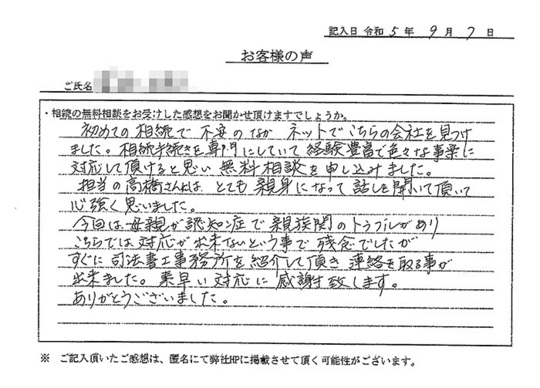 記入日 令和 5 年 9 月 7 日
お客様の声
ご氏名
・相続の無料相談をお受けした感想をお聞かせ頂けますでしょうか。
初めての相続で不安のなか ネットでこちらの会社を見つけ
ました。相続手続きを専門にしていて経験豊富で色々な事案に
対応して頂けると思い無料相談を申し込みました。
担当の高橋さんは、とても親身になって話しを聞いて頂いて
心強く思いました。
今回は母親が認知症で親族間のトラブルがあり
こちらでは対応が出来ないという事で残念でしたが
すぐに司法書士事務所を紹介して頂き連絡を取る事が
出来ました。素早い対応に感謝致します。
ありがとうございました。
※ ご記入頂いたご感想は、匿名にて弊社HPに掲載させて頂く可能性がございます。